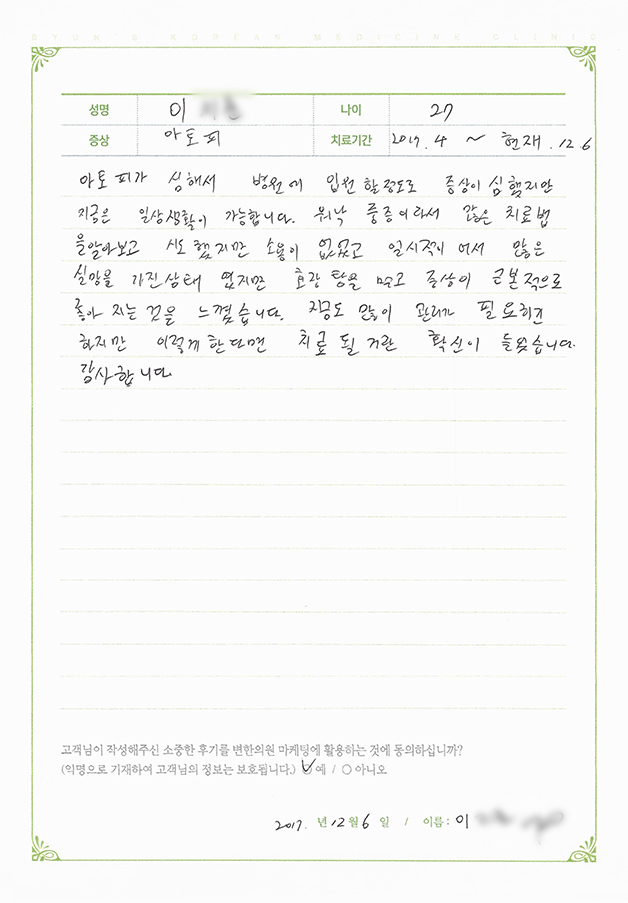 BYUN'S KOREAN MEDICINE CLINIC
성명 이 나이 27
증상 아토피 치료기간 2017. 4 ~ 현재. 12. 6
아토피가 심해서 병원에 입원 할 정도로 증상이 심했지만
지금은 일상생활이 가능합니다. 워낙 중증이라서 많은 치료법
을 알아보고 시도 했지만 소용이 없었고 일시적이어서 많은
실망을 가진 상태 였지만 효광 탕을 먹고 증상이 근본적으로
좋아 지는 것을 느꼈습니다. 지금도 많이 관리가 필요하긴
하지만 이렇게 한다면 치료 될 거란 확신이 들었습니다.
감사합니다
고객님이 작성해주신 소중한 후기를 변한의원 마케팅에 활용하는 것에 동의하십니까?
(익명으로 기재하여 고객님의 정보는 보호됩니다.) 예 / 아니오
2017. 년 12월 6 일 / 이름 : 이